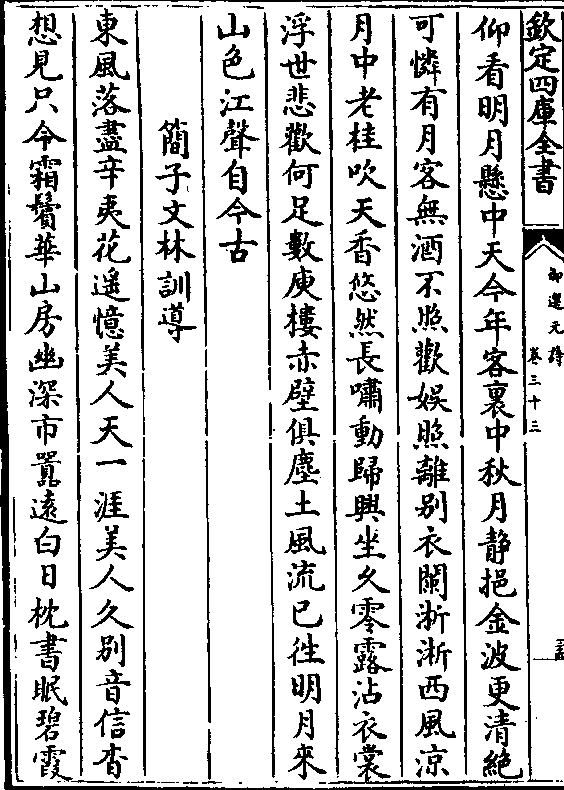 欽定四庫全書
御選元詩
卷三十三
仰看明月懸中天今年客裏中秋月靜挹金波更清絶
可憐有月客無酒不照歡娛照離别衣闌淅淅西風涼
月中老桂吹天香悠然長嘯動歸興坐久零露沾衣裳
浮世悲歡何足數庾樓赤壁俱塵土風流已徃明月來
山色江聲自今古
簡子文林訓導
東風落盡辛夷花遥憶美人天一涯美人久别音信杳
想見只今霜鬢華山房幽深市囂遠白日枕書眠碧霞